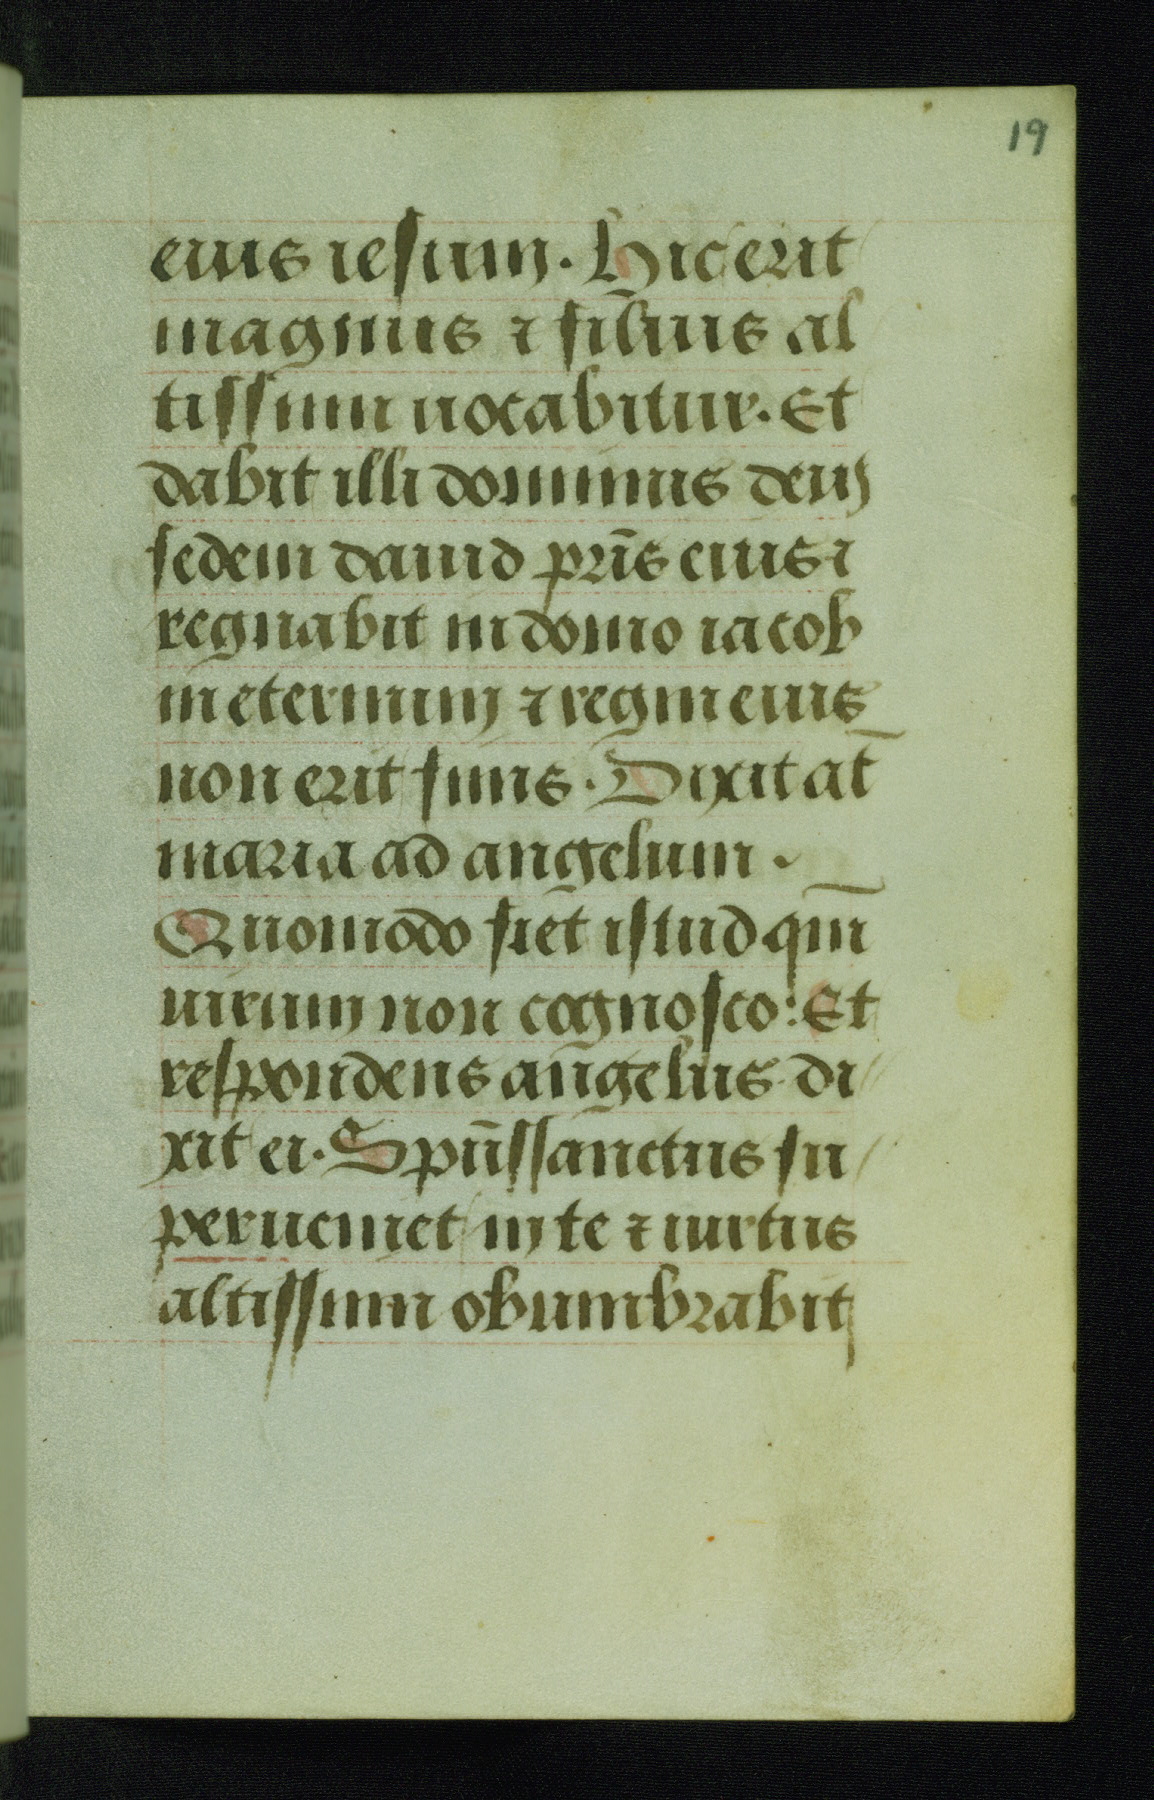 19
eius iesum. Hic erit
magnus ⁊ filius al
tissimi uocabitur. Et
dabit illi dominus deus
sedem dauid pr̄is eius ⁊
regnabit in domo iacob
in eternum ⁊ regni eius
non erit finis. Dixit at̄
maria ad angelum.
Quomodo fiet istud qm̄
uirum non cognosco: Et
respondens angelus di
xit ei. Sp̄ussanctus su
perueniet in te ⁊ uirtus
altissimi obumbrabit